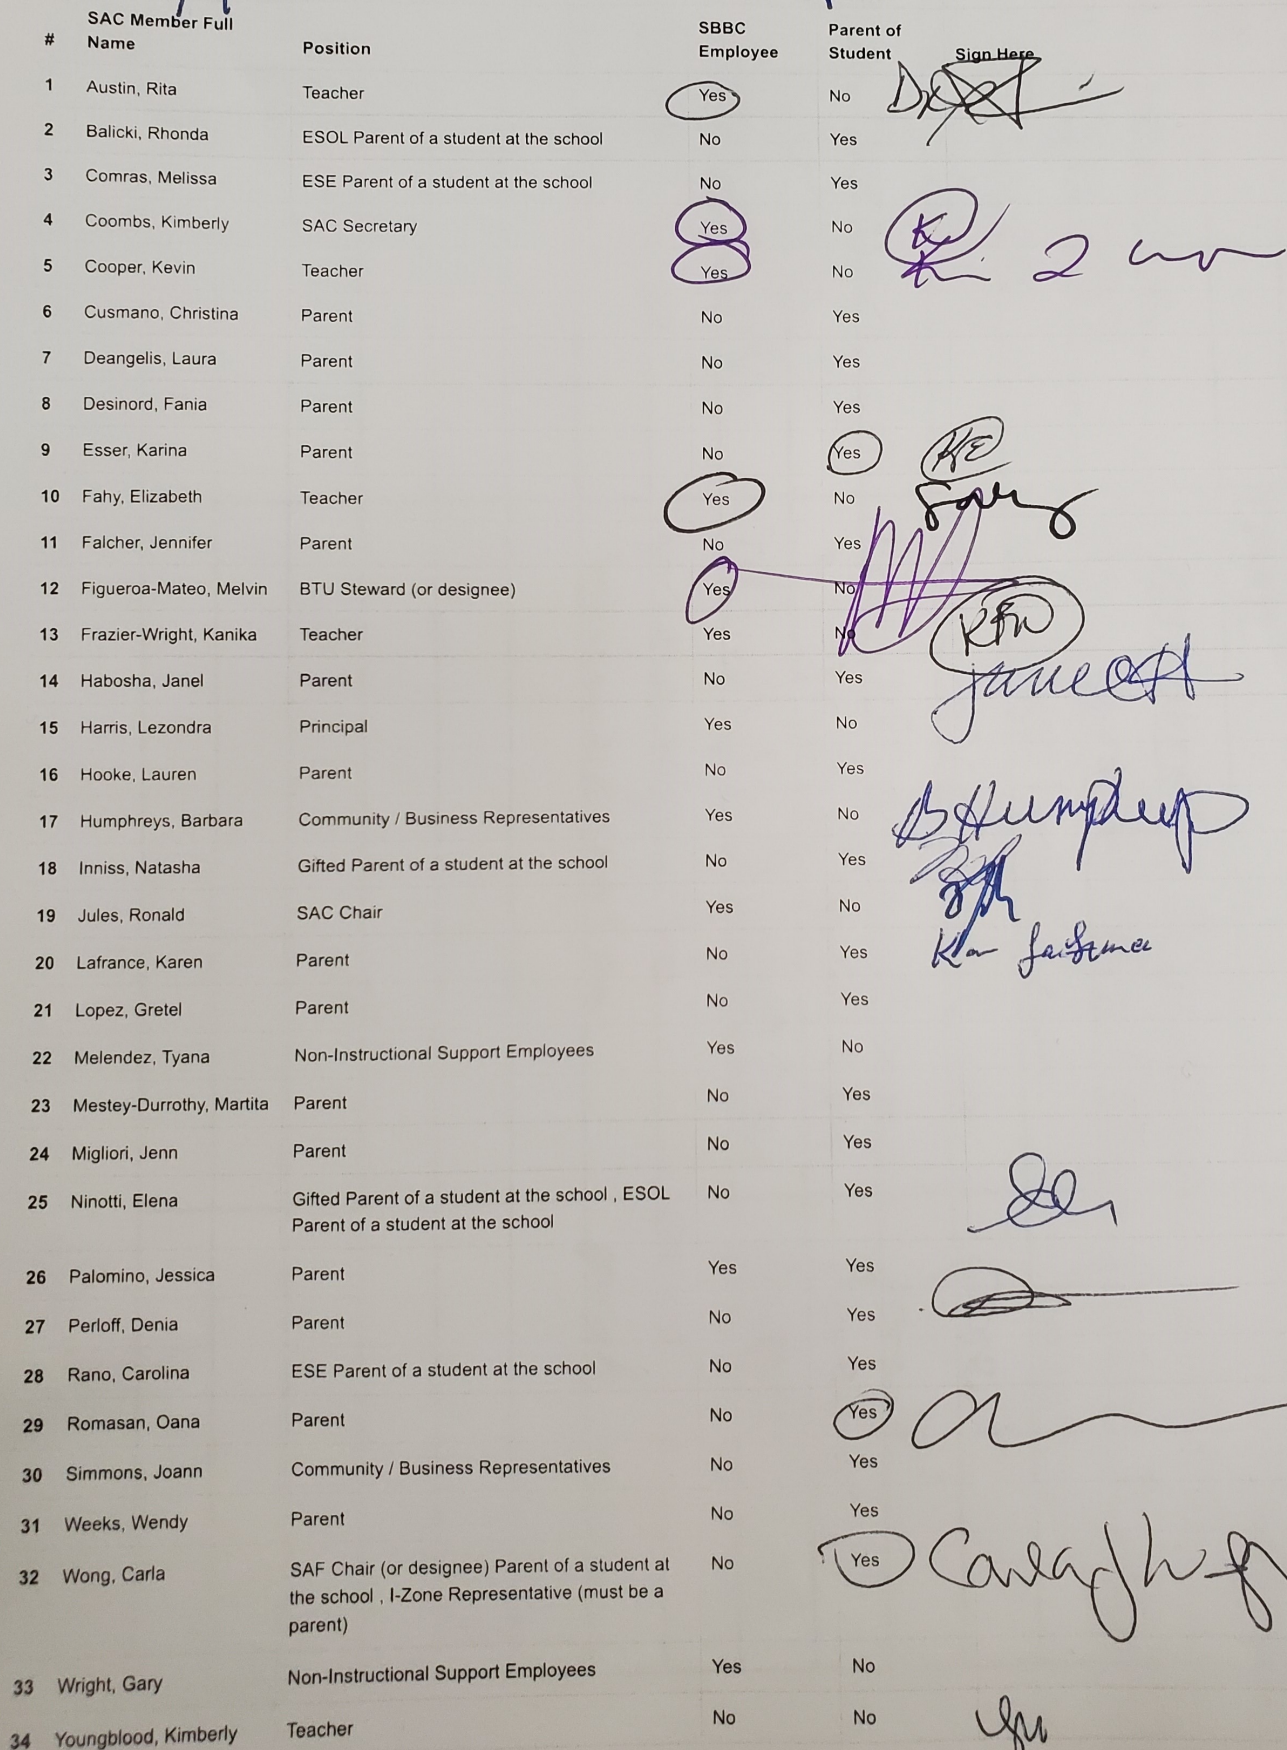 SAC Member Full SBBC Parent of
# Name Position Employee Student Sign Here
1 Austin, Rita Teacher Yes No
2 Balicki, Rhonda ESOL Parent of a student at the school No Yes
3 Comras, Melissa ESE Parent of a student at the school No Yes
4 Coombs, Kimberly SAC Secretary Yes No K
5 Cooper, Kevin Teacher Yes No
6 Cusmano, Christina Parent No Yes
7 Deangelis, Laura Parent No Yes
8 Desinord, Fania Parent No Yes
9 Esser, Karina Parent No Yes KE
10 Fahy, Elizabeth Teacher Yes No
11 Falcher, Jennifer Parent No Yes
12 Figueroa-Mateo, Melvin BTU Steward (or designee) Yes No
13 Frazier-Wright, Kanika Teacher Yes No KFW
14 Habosha, Janel Parent No Yes
15 Harris, Lezondra Principal Yes No
16 Hooke, Lauren Parent No Yes
17 Humphreys, Barbara Community / Business Representatives Yes No B Humphreys
18 Inniss, Natasha Gifted Parent of a student at the school No Yes
19 Jules, Ronald SAC Chair Yes No
20 Lafrance, Karen Parent No Yes
21 Lopez, Gretel Parent No Yes
22 Melendez, Tyana Non-Instructional Support Employees Yes No
23 Mestey-Durrothy, Martita Parent No Yes
24 Migliori, Jenn Parent No Yes
25 Ninotti, Elena Gifted Parent of a student at the school , ESOL No Yes
Parent of a student at the school
26 Palomino, Jessica Parent Yes Yes
27 Perloff, Denia Parent No Yes
28 Rano, Carolina ESE Parent of a student at the school No Yes
29 Romasan, Oana Parent No Yes
30 Simmons, Joann Community / Business Representatives No Yes
31 Weeks, Wendy Parent No Yes
32 Wong, Carla SAF Chair (or designee) Parent of a student at No Yes Carla
the school , I-Zone Representative (must be a
parent)
33 Wright, Gary Non-Instructional Support Employees Yes No
34 Youngblood, Kimberly Teacher No No